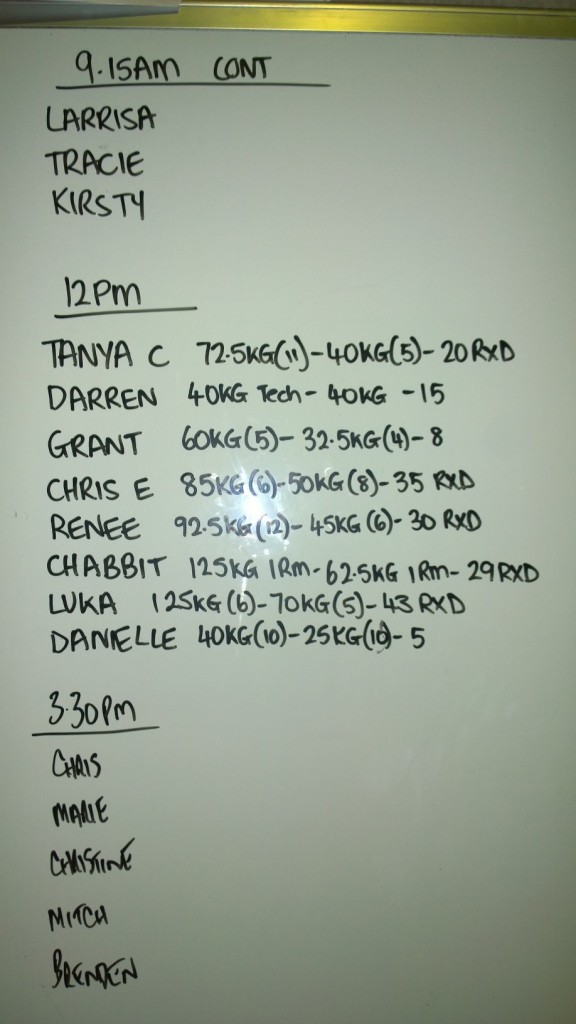 9.15AM CONT
LARRISA
TRACIE
KIRSTY
12PM
TANYA C 72.5KG(11)-40KG(5)-20 RXD
DARREN 40KG Tech- 40KG -15
GRANT 60KG(5)- 32.5KG(4)-8
CHRIS E 85KG(6)-50KG(8)-35 RXD
RENEE 92.5KG(12)- 45KG(6)- 30 RXD
CHABBIT 125KG 1Rm-62.5KG 1Rm- 29RXD
LUKA 125KG(6)-70KG(5)-43 RXD
DANIELLE 40KG(10)-25KG(10)- 5
3.30Pm
CHRIS
MARIE
CHRISTINE
MITCH
BRENDEN